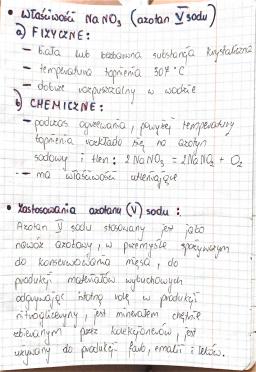 • Właściwości NaNO₃ (azotan V sodu)
a) FIZYCZNE:
– biała lub bezbarwna substancja krystaliczna
– temperatura topnienia 307 °C
– dobrze rozpuszczalny w wodzie
b) CHEMICZNE:
– podczas ogrzewania, powyżej temperatury
topnienia rozkłada się na azotyn
sodowy i tlen: 2NaNO₃ = 2NaNO₂ + O₂
– ma właściwości utleniające
• Zastosowania azotanu (V) sodu:
Azotan V sodu stosowany jest jako
nawóz azotowy, w przemyśle spożywczym
do konserwowania mięsa, do
produkcji materiałów wybuchowych
odgrywając istotną rolę w produkcji
nitrogliceryny, jest minerałem chętnie
zbieranym przez kolekcjonerów, jest
używany do produkcji farb, emalii i leków.